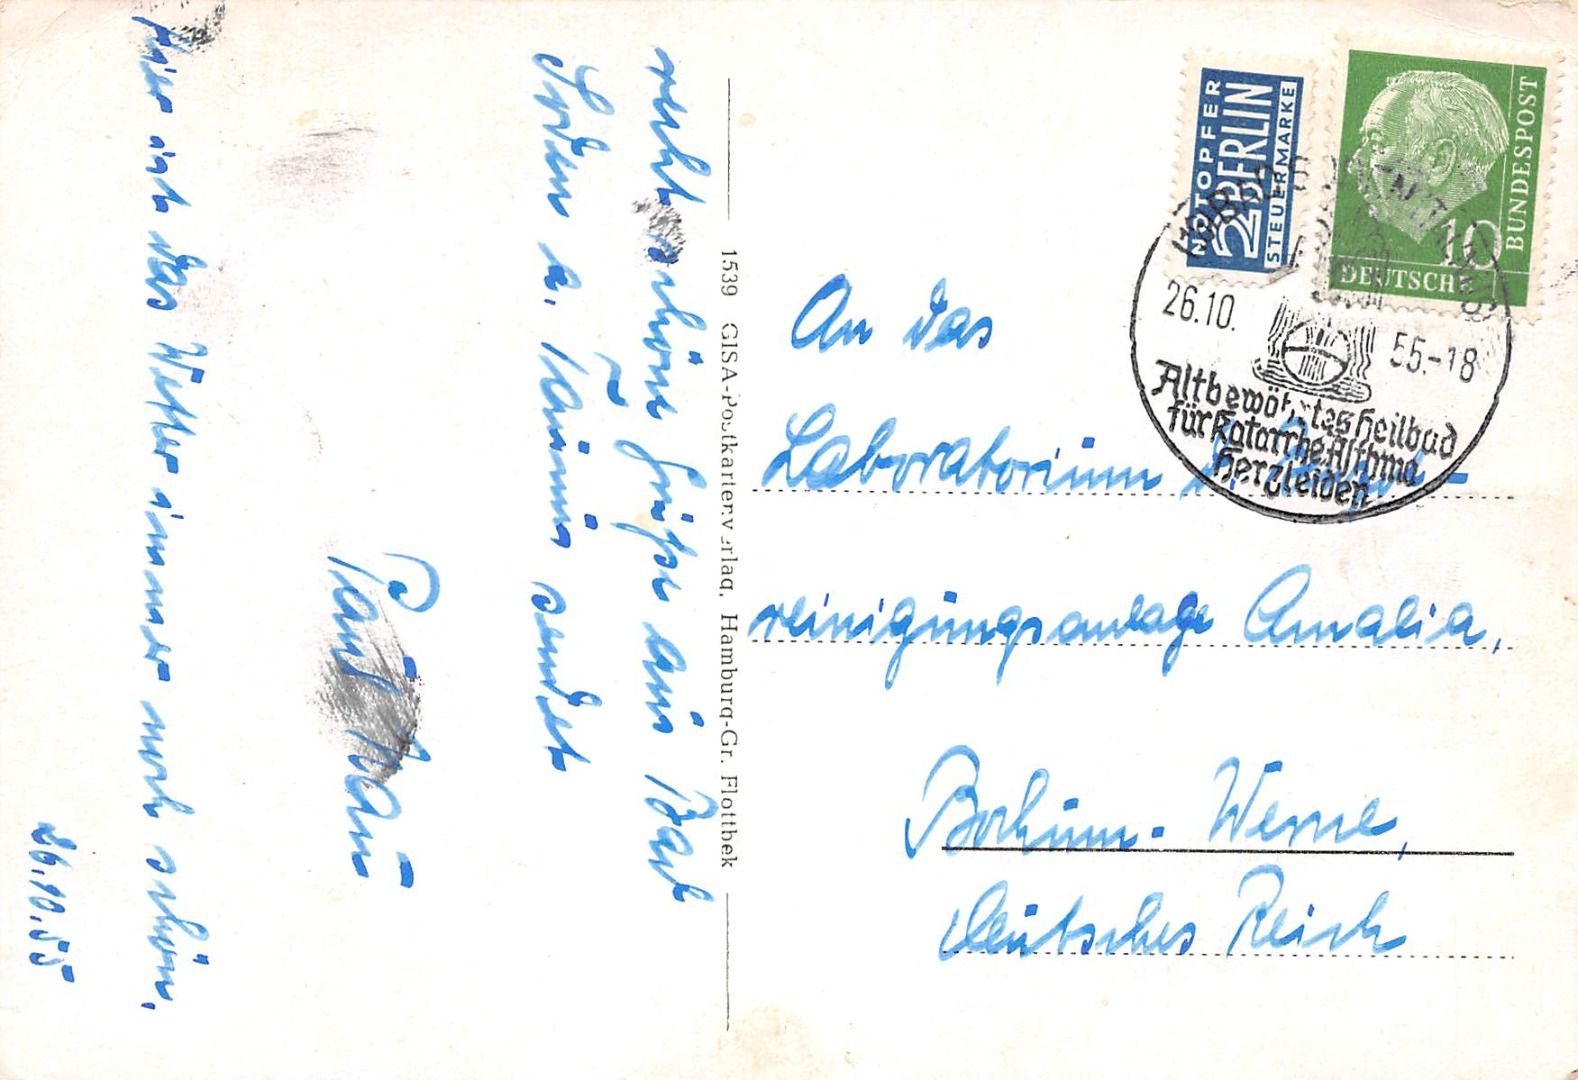 26.10.55
Hier ist das Wetter immer noch schön,
recht schöne Grüße aus Bad
Soden a. Taunus sendet
Paul
1539 GISA-Postkartenverlag, Hamburg-Gr. Flottbek
NOTOPFER
2 BERLIN
STEUERMARKE
DEUTSCHE
BUNDESPOST
10
26.10.55.-18
Altbewährtes Heilbad
für Katarrhe, Asthma
Herzleiden
An das
Laboratorium d.
reinigungsanlage Amalia,
Bochum-Werne,
Deutsches Reich